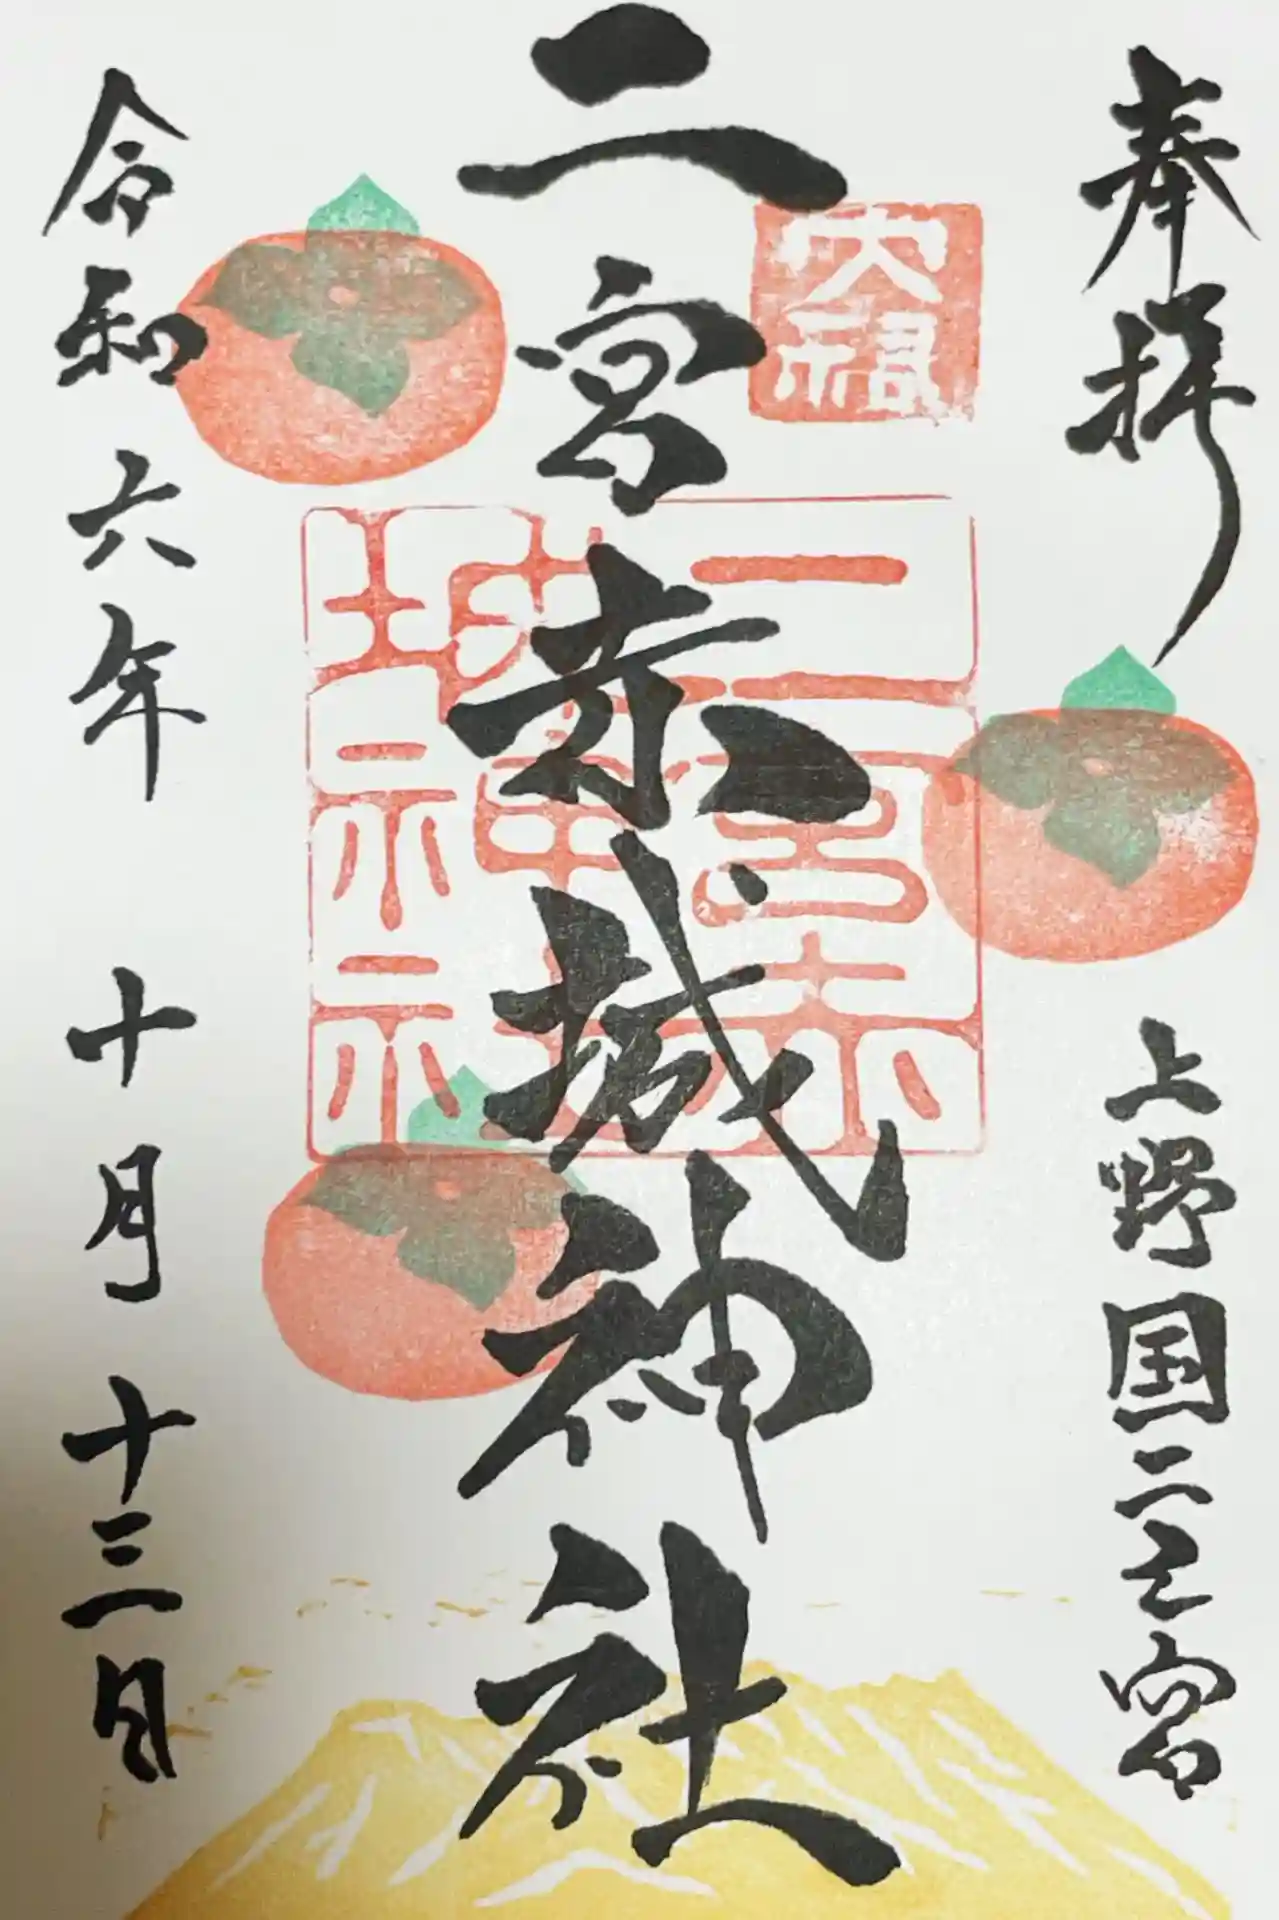 奉拝
上野国二之宮
大福
二宮赤城神社
二宮赤
城神社
令和六年十月十三日